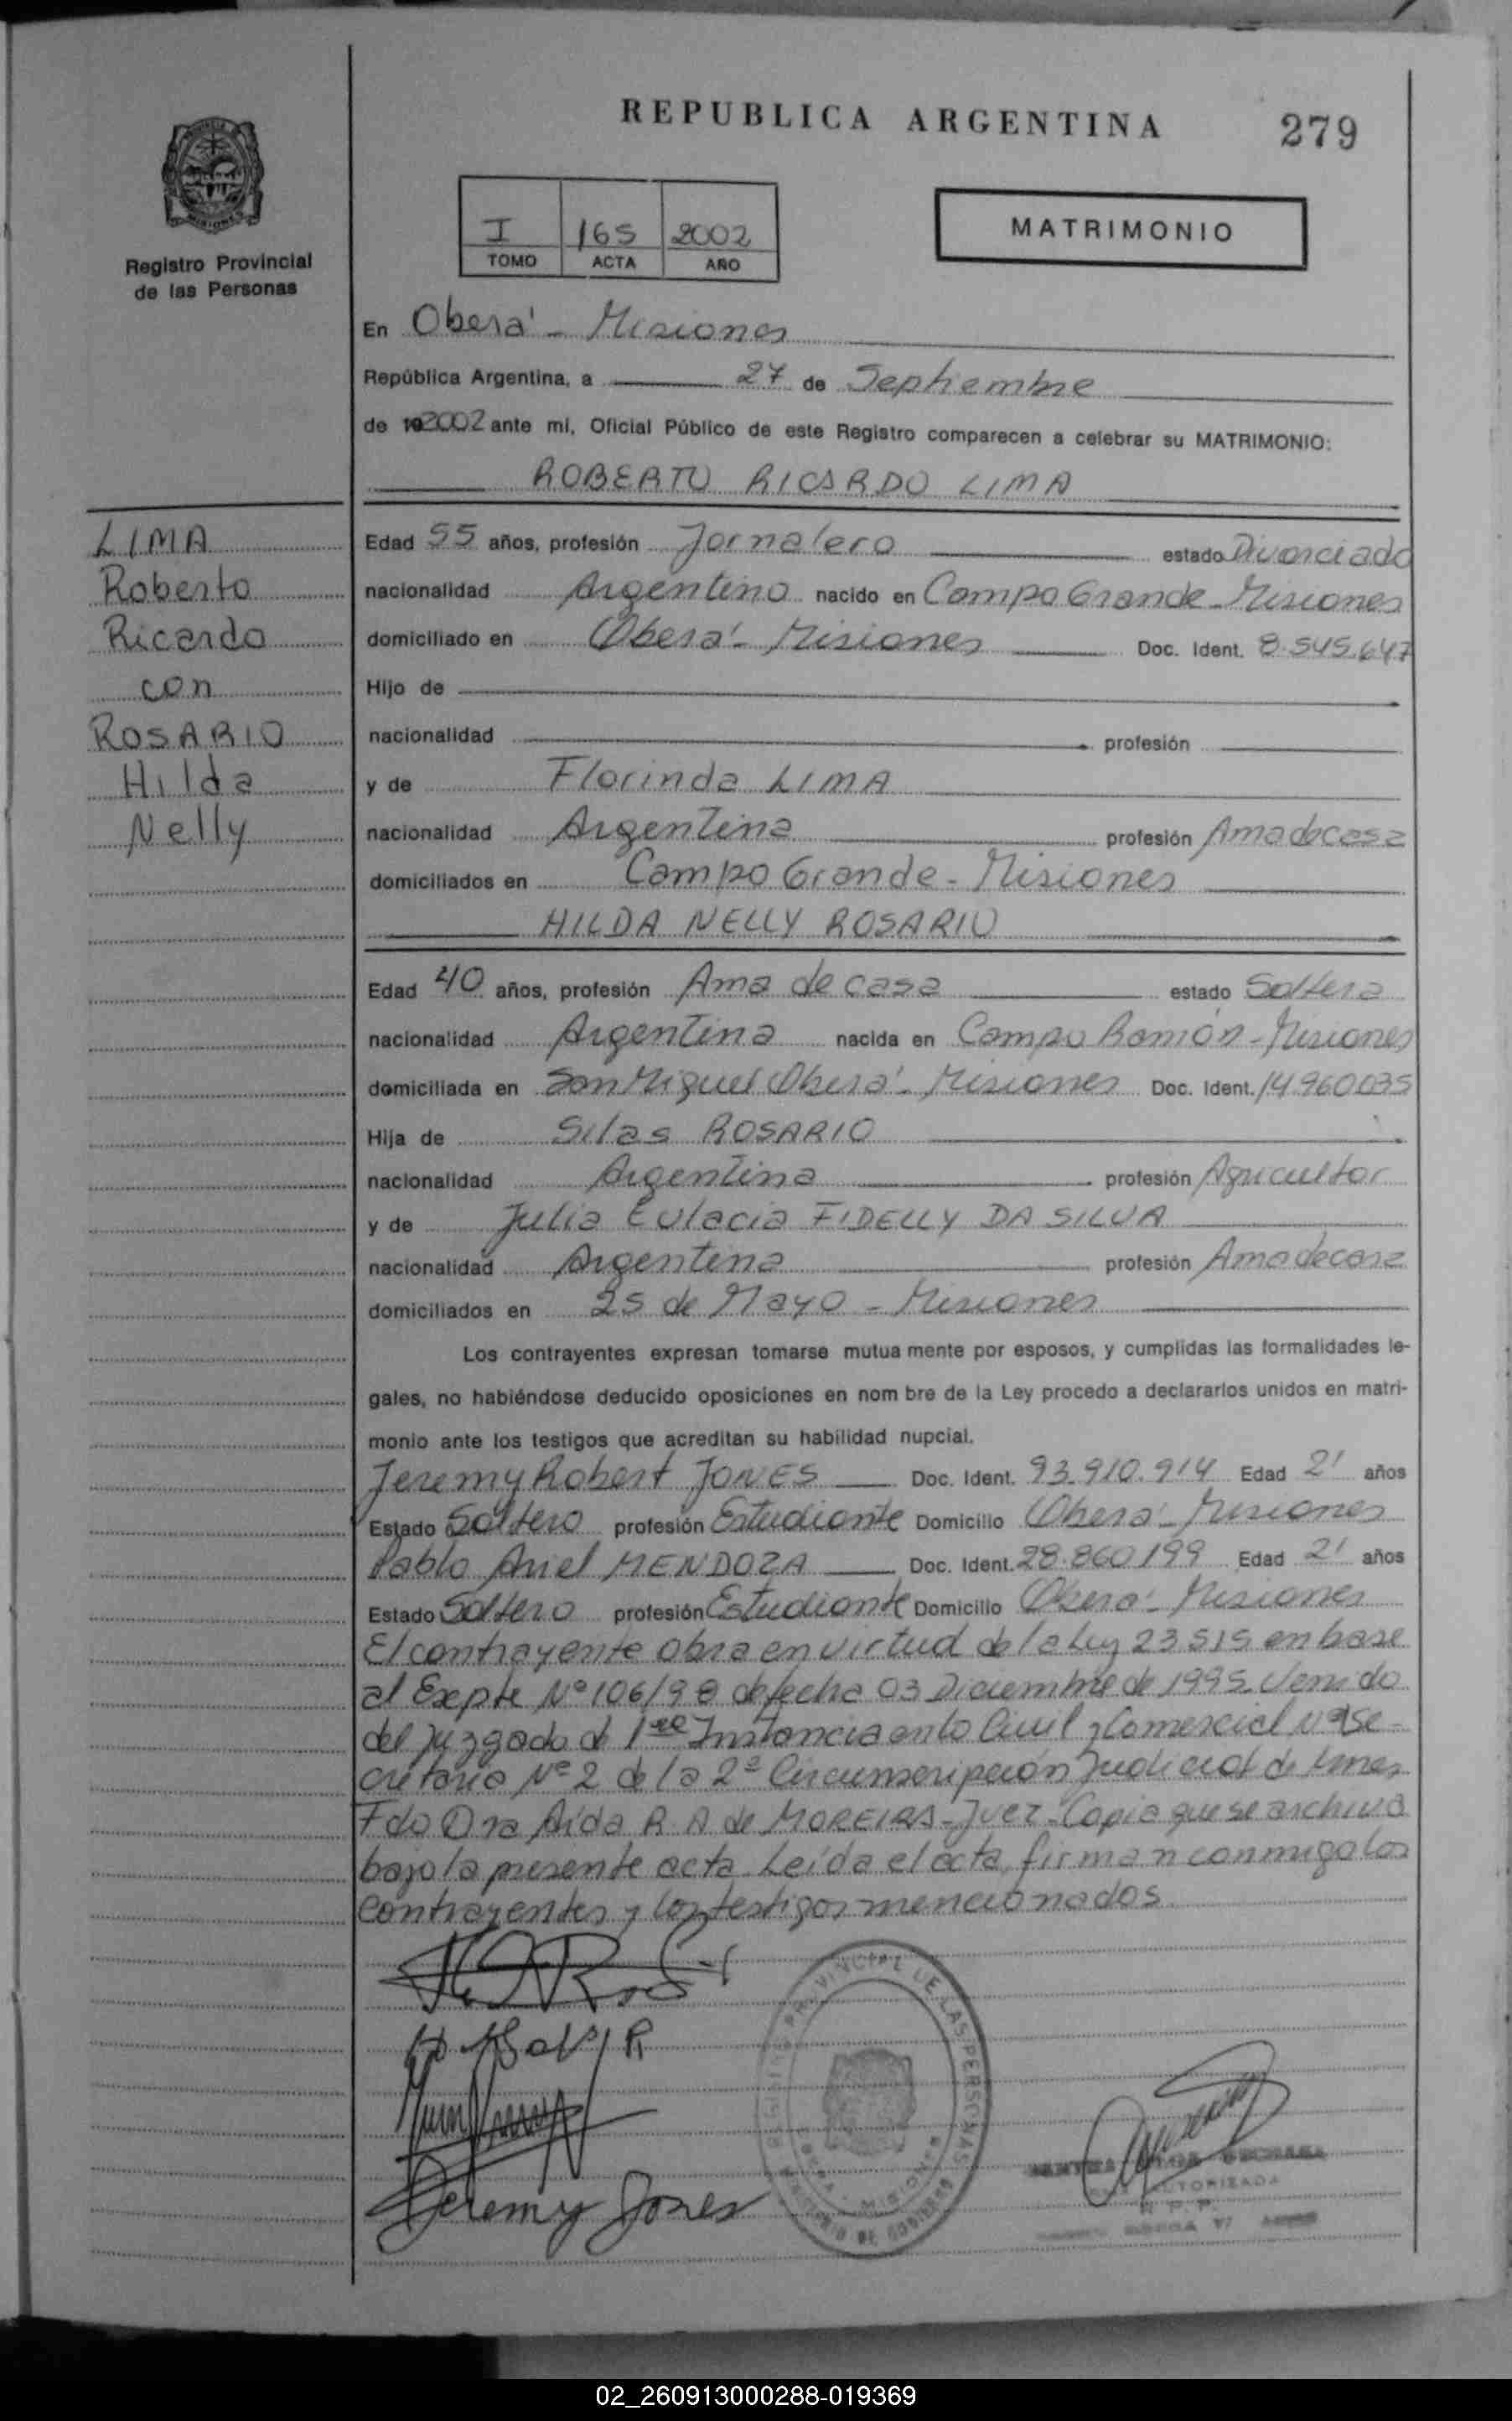 REPUBLICA ARGENTINA
279
Registro Provincial
de las Personas
I 165 2002
TOMO ACTA AÑO
MATRIMONIO
En Oberá - Misiones
República Argentina, a 27 de Septiembre
de 192002 ante mi, Oficial Público de este Registro comparecen a celebrar su MATRIMONIO:
ROBERTO RICARDO LIMA
LIMA
Roberto
Ricardo
con
ROSARIO
Hilda
Nelly
Edad 55 años, profesión Jornalero estado Divorciado
nacionalidad Argentino nacido en Campo Grande - Misiones
domiciliado en Oberá - Misiones Doc. Ident. 8.545.647
Hijo de
nacionalidad profesión
y de Florinda LIMA
nacionalidad Argentina profesión Ama de casa
domiciliados en Campo Grande - Misiones
HILDA NELLY ROSARIO
Edad 40 años, profesión Ama de casa estado Soltera
nacionalidad Argentina nacida en Campo Ramón - Misiones
domiciliada en San Miguel Oberá - Misiones Doc. Ident. 14.960.035
Hija de Silas ROSARIO
nacionalidad Argentina profesión Agricultor
y de Julia Eulacia FIDELLY DA SILVA
nacionalidad Argentina profesión Ama de casa
domiciliados en 25 de Mayo - Misiones
Los contrayentes expresan tomarse mutua mente por esposos, y cumplidas las formalidades le-
gales, no habiéndose deducido oposiciones en nom bre de la Ley procedo a declararlos unidos en matri-
monio ante los testigos que acreditan su habilidad nupcial.
Jeremy Robert JONES Doc. Ident. 93.910.914 Edad 21 años
Estado Soltero profesión Estudiante Domicilio Oberá - Misiones
Pablo Ariel MENDOZA Doc. Ident. 28.860.199 Edad 21 años
Estado Soltero profesión Estudiante Domicilio Oberá - Misiones
El contrayente obra en virtud de la Ley 23515 en base
al Expte Nº 106/98 de fecha 03 Diciembre de 1995. Venido
del Juzgado de 1ra Instancia en lo Civil y Comercial Se-
cretaria Nº 2 de la 2ª Circunscripción Judicial de
Fdo Dra Aída R. A de MOREIRA - Juez - Copia que se archiva
bajo la presente acta. Leída el acta, firman conmigo los
contrayentes y los testigos mencionados
Jeremy Jones
PROVINCIAL DE LAS PERSONAS
MISIONES
MINISTERIO DE GOBIERNO
AUTORIZADA
R. P. P.
02_260913000288-019369